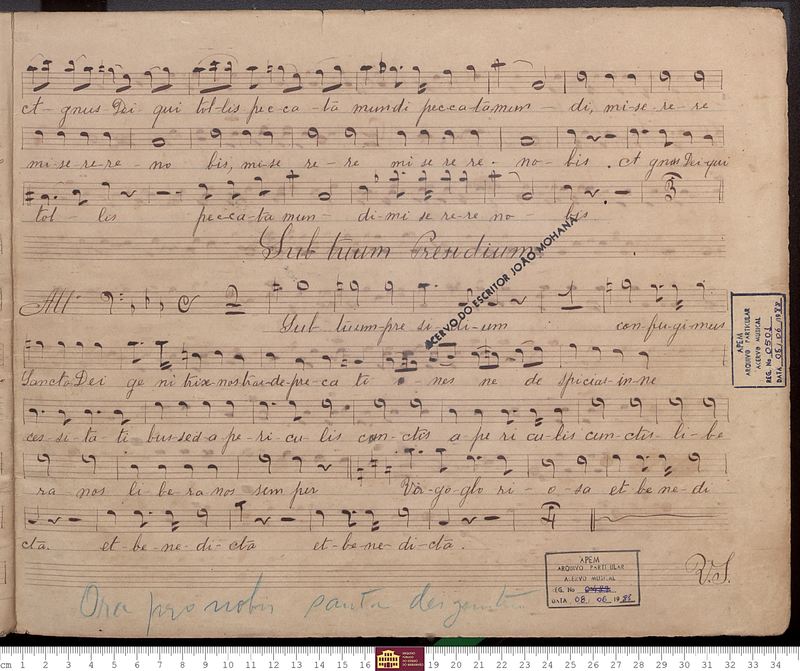 Agnus Dei qui tol-lis pec-ca-ta mundi pec-ca-ta mun-di, mi-se-re-re
mi-se-re-re-no bis, mi-se re-re mi se re re. no-bis. Agnus Dei-qui
tol-lis pec-ca-ta mun-di-mi se re-re no-bis.
Sub tuum Presidium
All.º
Sub tuum-pre si-di-um con-fu-gi-mus
Sancta Dei ge ni trix-nostras-de-pre-ca ti o-nes ne de spicias-in-ne
ces-si-ta-ti bus sed-a pe-ri-cu-lis cun-ctis a-pe ri cu-lis cun-ctis-li-be
ra-nos li-be-ra nos sem per Vir-go-glo ri-o-sa et be ne-di
cta. et-be-ne-di-cta et-be-ne-di-cta.
V.S.
Ora pro nobis santa dei genitrix
ACERVO DO ESCRITOR JOÃO MOHANA
APEM
ARQUIVO PARTICULAR
ACERVO MUSICAL
REG. No 0501
DATA 05/06/1988
APEM
ARQUIVO PARTICULAR
ACERVO MUSICAL
REG. No
DATA 08. 06 19
cm 1 2 3 4 5 6 7 8 9 10 11 12 13 14 15 16 19 20 21 22 23 24 25 26 27 28 29 30 31 32 33 34